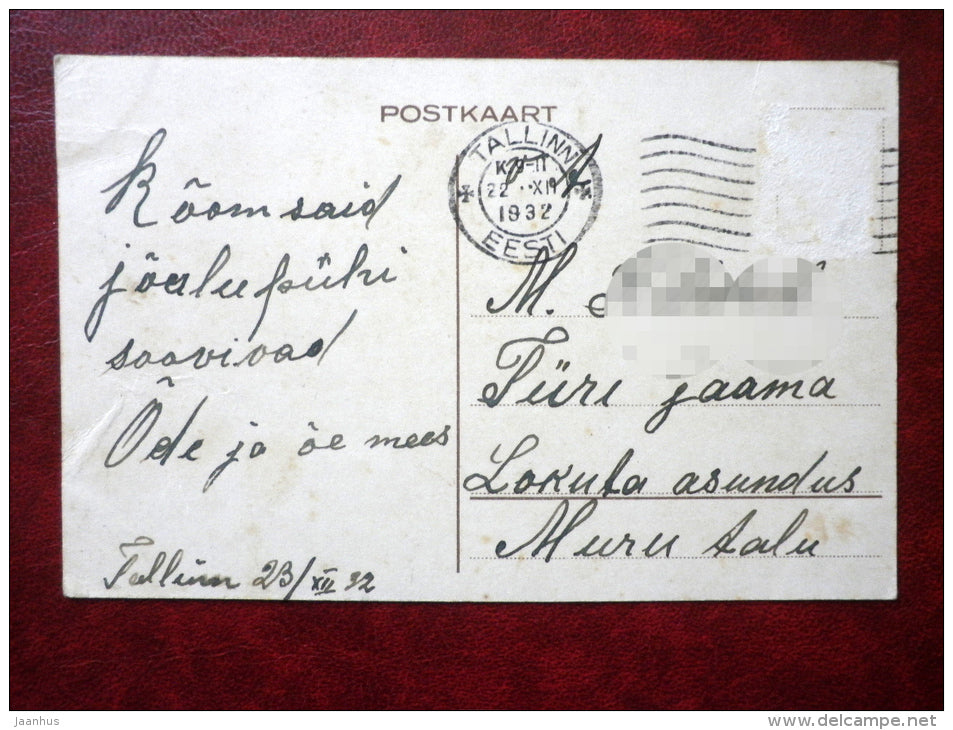 POSTKAART
TALLINN
22 XII
1932
EESTI
Rõõmsaid
jõulupühi
soovivad
Õde ja õe mees
Tallinn 23/XII 32
M.
Türi jaama
Lokuta asundus
Muru talu
jaanhus
www.delcampe.net